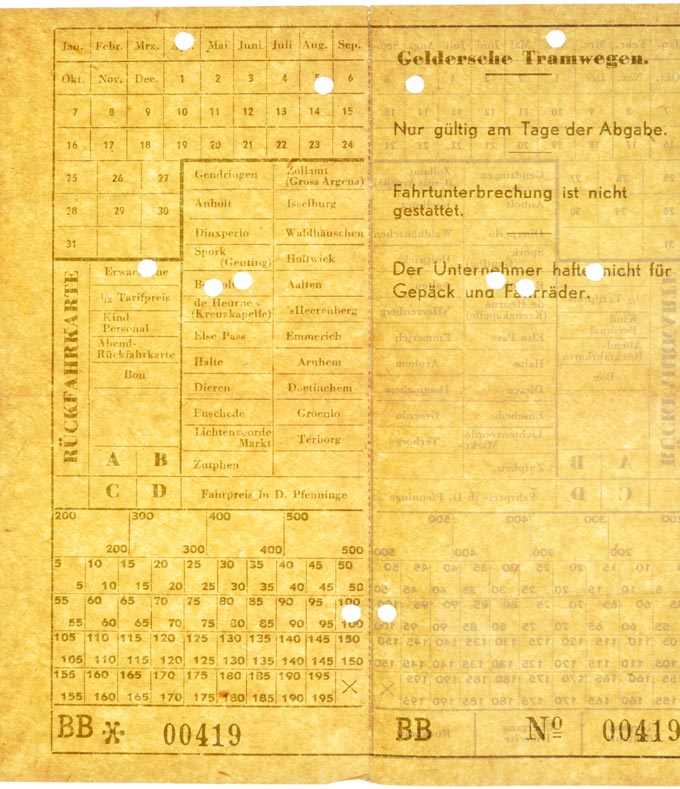 Jan. Febr. Mrz. Mai Juni Juli Aug. Sep.
Okt. Nov. Dec. 1 2 3 4 5 6
7 8 9 10 11 12 13 14 15
16 17 18 19 20 21 22 23 24
25 26 27
28 29 30
31
Gendringen Zollamt (Gross Argena)
Anholt Isselburg
Dinxperlo Waldhäuschen
Spork (Geuting) Holtwick
Aalten
de Heurne - (Kreuzkapelle) 'sHeerenberg
Else Pass Emmerich
Halte Arnhem
Dieren Doetinchem
Enschede Groenlo
Lichtenvoorde Markt Terborg
Zutphen
RÜCKFAHRKARTE
Erwachsene
½ Tarifpreis
Kind
Personal
Abend-
Rückfahrkarte
Bon
A B
C D Fahrpreis in D. Pfenninge
200 300 400 500
200 300 400 500
5 10 15 20 25 30 35 40 45 50
5 10 15 20 25 30 35 40 45 50
55 60 65 70 75 80 85 90 95 100
55 60 65 70 75 80 85 90 95 100
105 110 115 120 125 130 135 140 145 150
105 110 115 120 125 130 135 140 145 150
155 160 165 170 175 180 185 190 195
155 160 165 170 175 180 185 190 195
BB 00419
Geldersche Tramwegen.
Nur gültig am Tage der Abgabe.
Fahrtunterbrechung ist nicht
gestattet.
Der Unternehmer haftet nicht für
Gepäck und Fahrräder.
BB Nº 00419